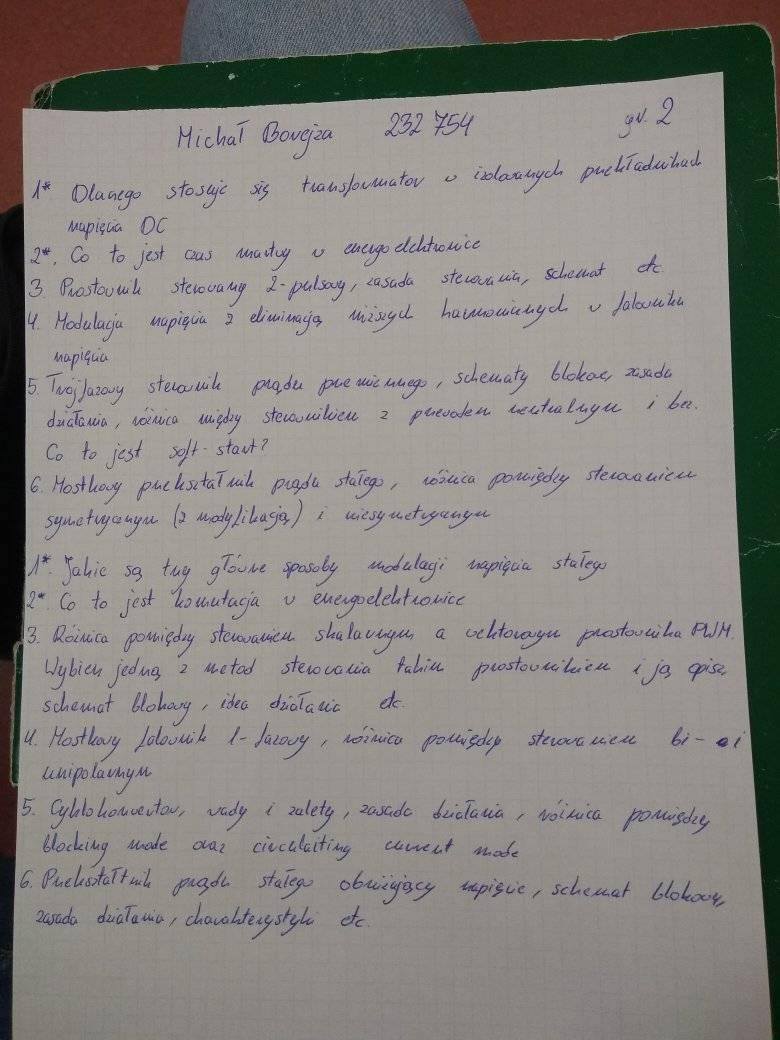 Michał Bovejza 232 754 gr. 2
1* Dlaczego stosuje się transformator w izolowanych przekładnikach
napięcia DC
2*. Co to jest czas martwy w energoelektronice
3. Prostownik sterowany 2-pulsowy, zasada sterowania, schemat etc.
4. Modulacja napięcia z eliminacją niższych harmonicznych w falowniku
napięcia
5. Trójfazowy sterownik prądu przemiennego, schematy blokowe, zasada
działania, różnica między sterownikiem z przewodem neutralnym i bez.
Co to jest soft-start?
6. Mostkowy przekształtnik prądu stałego, różnica pomiędzy sterowaniem
symetrycznym (z modyfikacją) i niesymetrycznym
1*. Jakie są trzy główne sposoby modulacji napięcia stałego
2*. Co to jest komutacja w energoelektronice
3. Różnica pomiędzy sterowaniem skalarnym a wektorowym prostownika PWM.
Wybierz jedną z metod sterowania takim prostownikiem i ją opisz,
schemat blokowy, idea działania etc.
4. Mostkowy falownik 1-fazowy, różnica pomiędzy sterowaniem bi- i
unipolarnym
5. Cyklokonwertor, wady i zalety, zasada działania, różnica pomiędzy
blocking mode oraz circulaiting current mode
6. Przekształtnik prądu stałego obniżający napięcie, schemat blokowy,
zasada działania, charakterystyki etc.